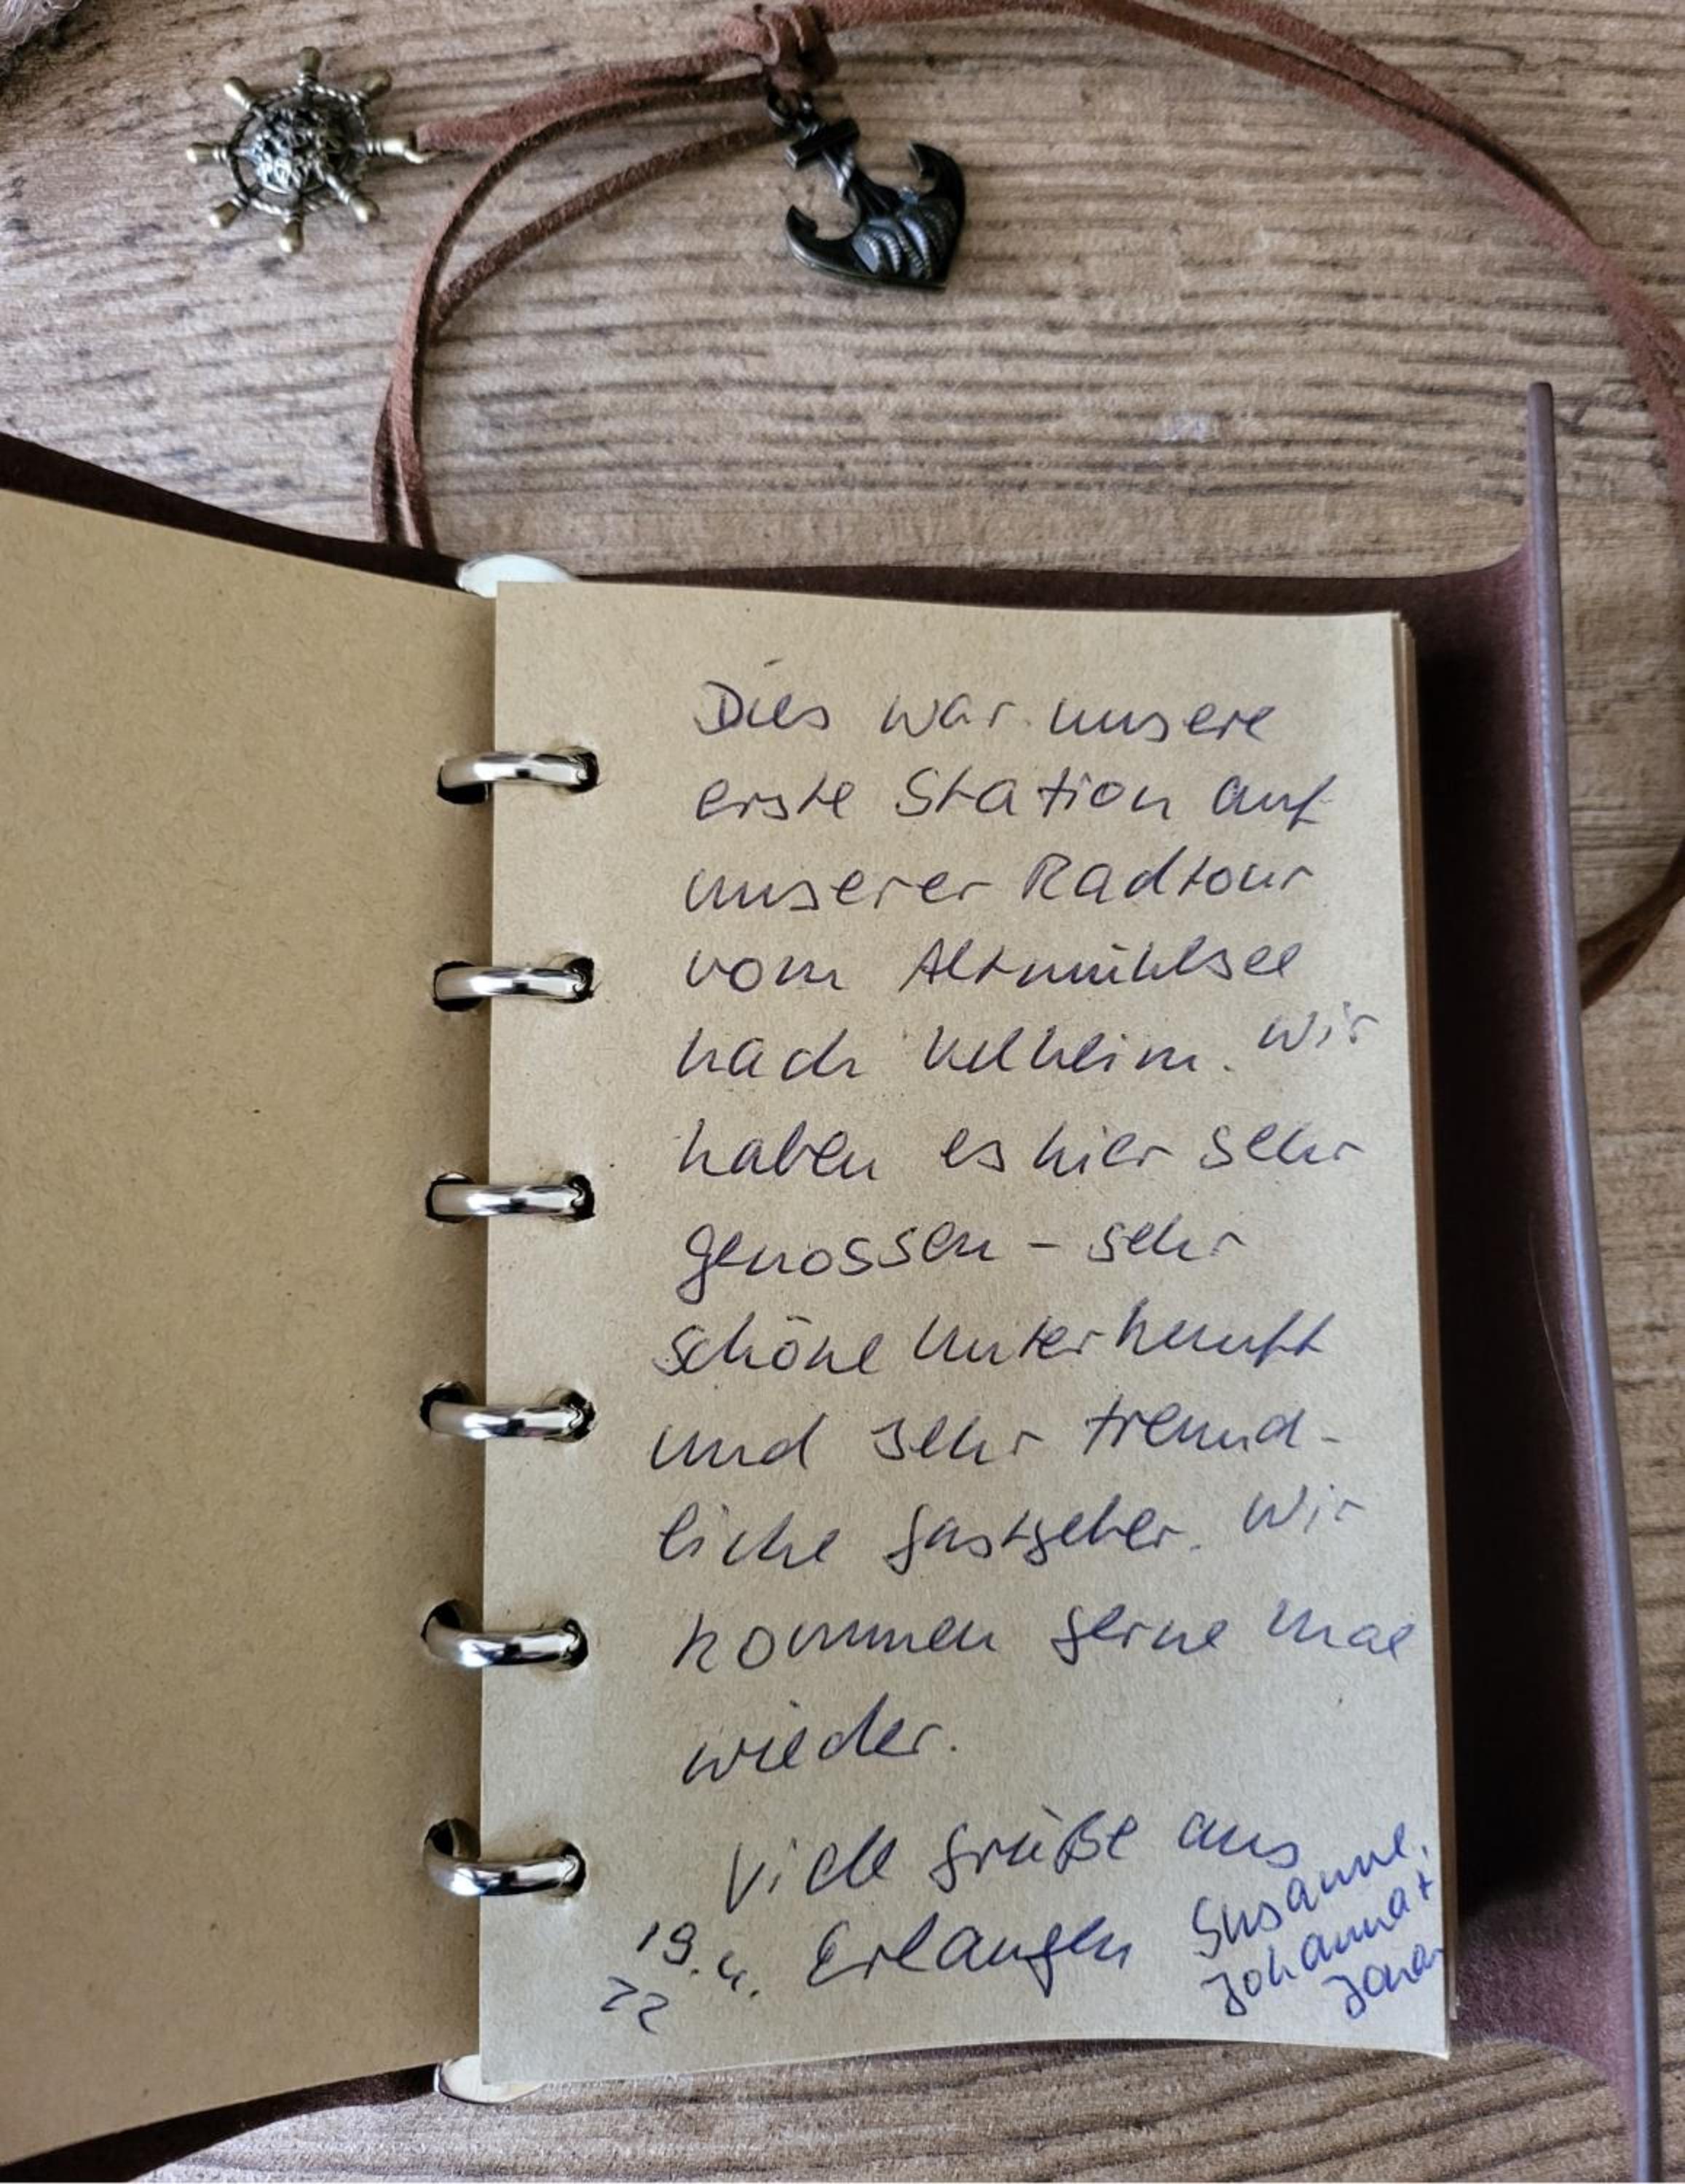 Dies war unsere
erste Station auf
unserer Radtour
vom Altmühlsee
nach Kelheim. Wir
haben es hier sehr
genossen - sehr
schöne Unterkunft
und sehr freund-
liche Gastgeber. Wir
kommen gerne mal
wieder.
Viele Grüße aus
Erlangen
Susanne,
Johanna +
19.4.
22